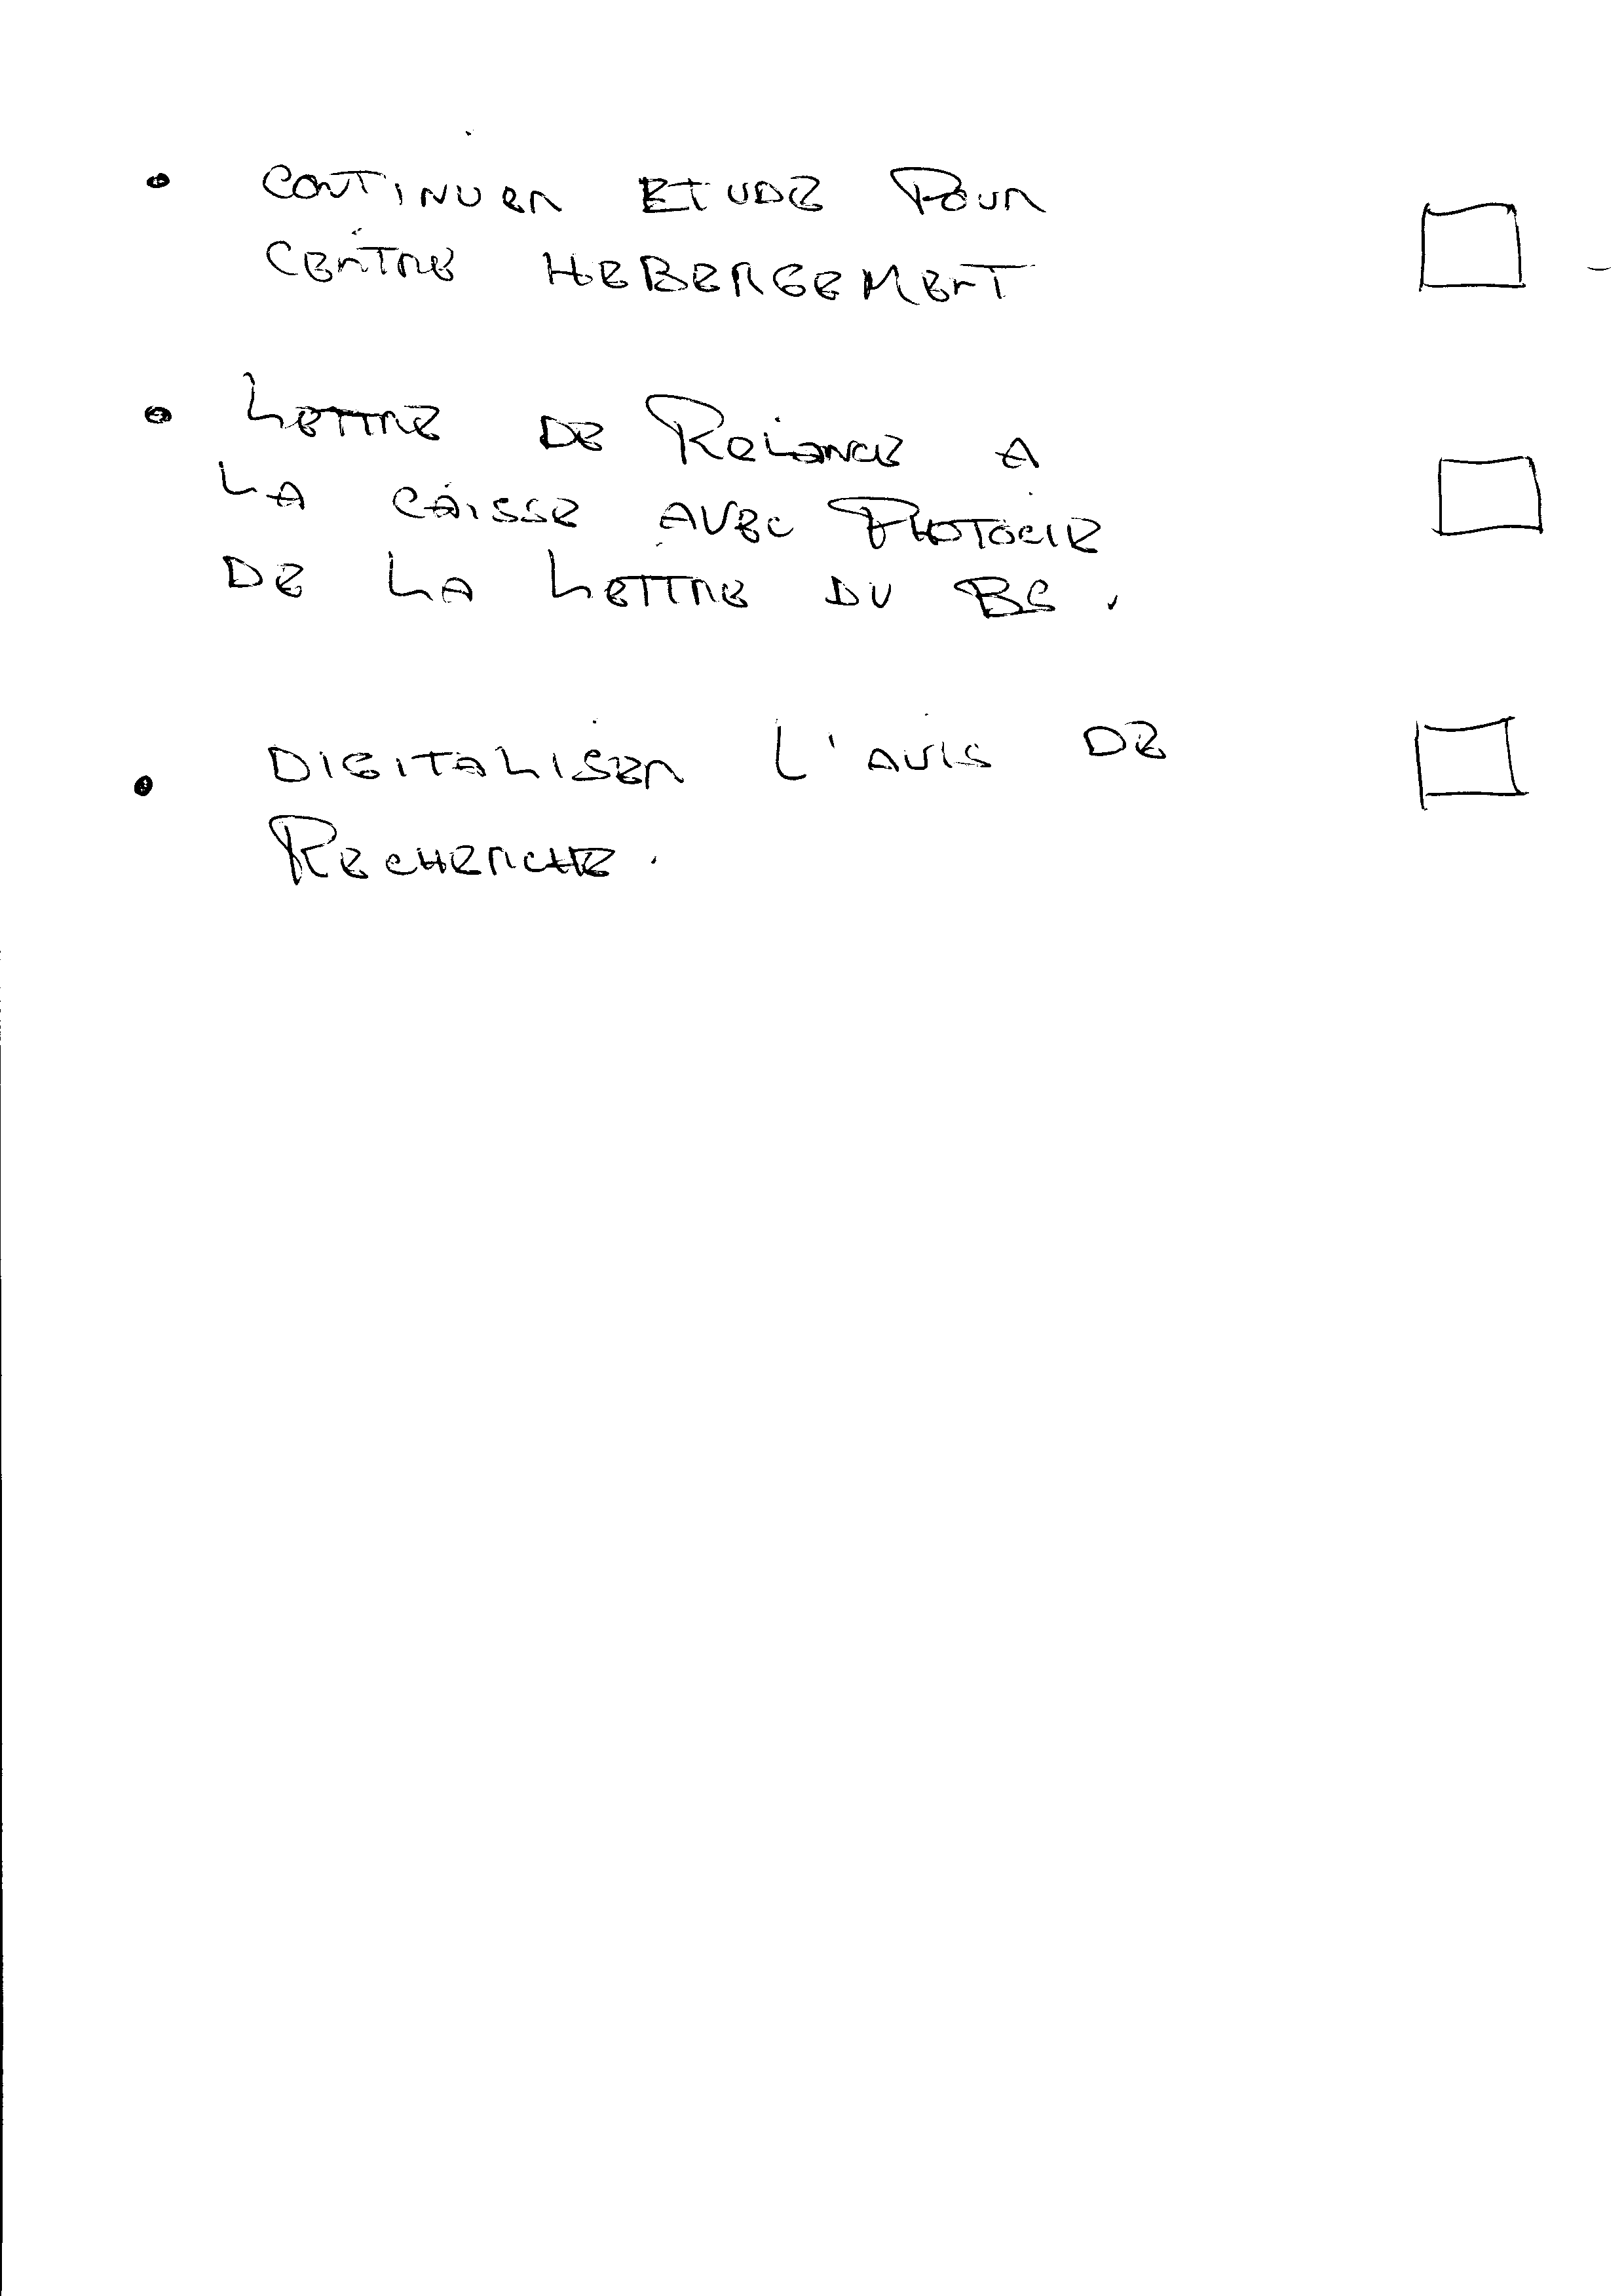 • CONTINUER ETUDE POUR
CENTRE HEBERGEMENT
• LETTRE DE RELANCE A
LA CAISSE AVEC PHOTOCIE
DE LA LETTRE DU BS.
• DIGITALISER L'AVIS DE
RECHERCHE.